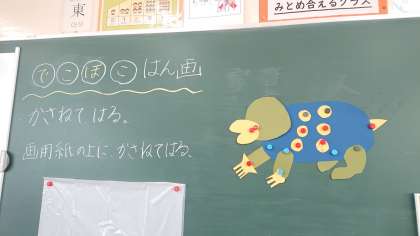 東
みとめ合えるクラス
でこぼこはん画
かさねてはる。
画用紙の上に、かさねてはる。